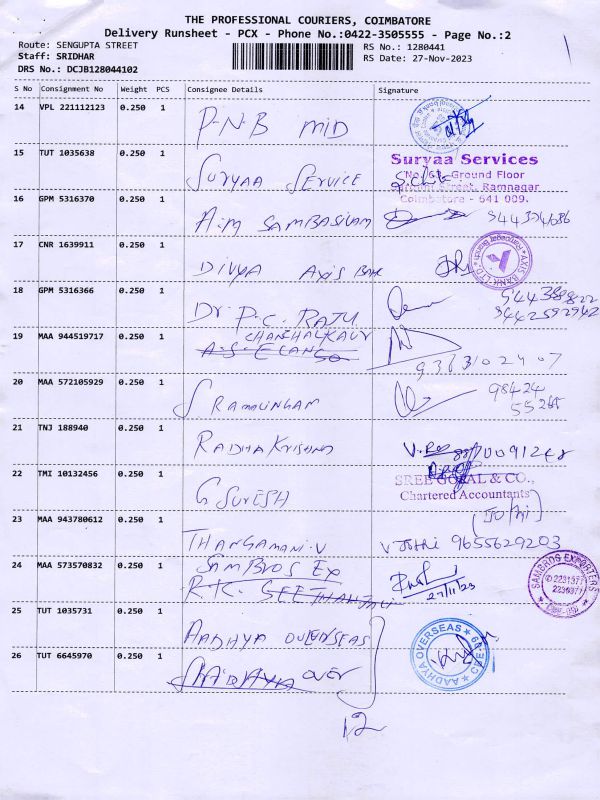 THE PROFESSIONAL COURIERS, COIMBATORE
Delivery Runsheet - PCX - Phone No.:0422-3505555 - Page No.:2
Route: SENGUPTA STREET
RS No.: 1280441
Staff: SRIDHAR
RS Date: 27-Nov-2023
DRS No.: DCJB128044102
S No Consignment No Weight PCS Consignee Details Signature
14 VPL 221112123 0.250 1 P-N-B MID
15 TUT 1035638 0.250 1 SURYAA SERVICE
Suryaa Services
Ground Floor
Street, Ramnagar
Coimbatore - 641 009.
16 GPM 5316370 0.250 1 A.M SAMBASIVAM
17 CNR 1639911 0.250 1 DIVYA AXIS BANK
AXIS BANK LTD
18 GPM 5316366 0.250 1 Dr P.C. RAJU
19 MAA 944519717 0.250 1 CHANCHALKAUR
A.S. ELANGO
20 MAA 572105929 0.250 1 S RAMALINGAM
98424
55265
21 TNJ 188940 0.250 1 RADHA KRISHNA
22 TMI 10132456 0.250 1 G SURESH
SREE GOPAL & CO.,
Chartered Accountants
23 MAA 943780612 0.250 1 THANGAMANI.V
V Jothi 9655629203
24 MAA 573570832 0.250 1 SAMBROS EX
R.K.
27/11/23
SAMBROS EXPORTERS
25 TUT 1035731 0.250 1 AADHYA OVERSEAS
AADHYA OVERSEAS
26 TUT 6645970 0.250 1 OVER
12